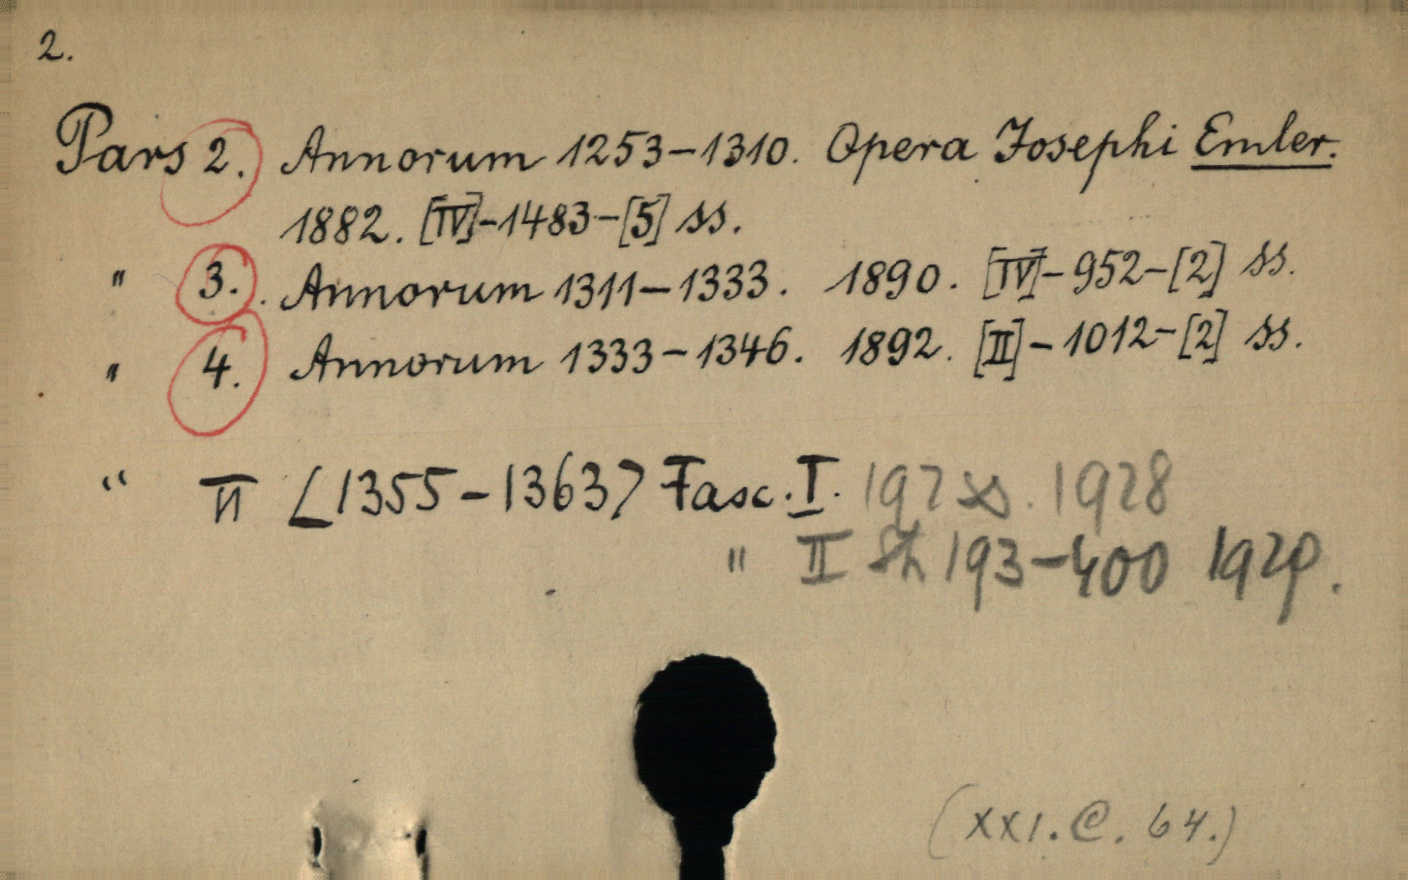 2.
Pars 2. Annorum 1253-1310. Opera Josephi Emler.
1882. [IV]-1483-[5] ss.
" 3. Annorum 1311-1333. 1890. [IV]-952-[2] ss.
" 4. Annorum 1333-1346. 1892. [II]-1012-[2] ss.
" (1355-1363) Fasc. I. 192 ss. 1928
" II 193-400 1929.
(XXI. C. 64.)